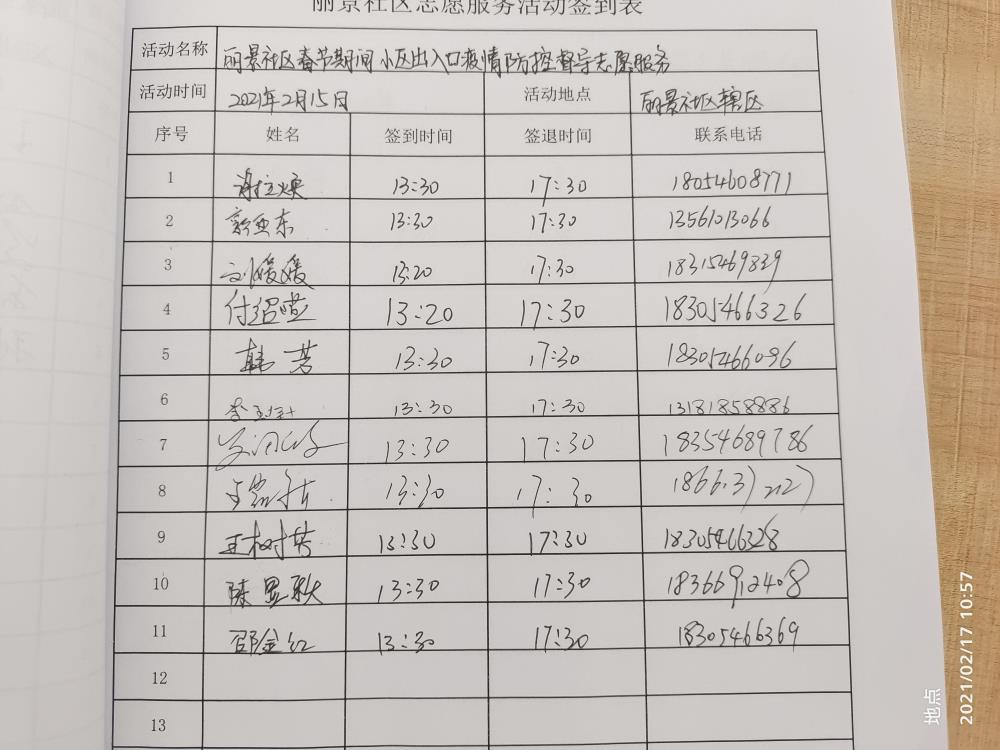 丽景社区志愿服务活动签到表
活动名称 丽景社区春节期间小区出入口疫情防控督导志愿服务
活动时间 2021年2月15日 活动地点 丽景社区辖区
序号 姓名 签到时间 签退时间 联系电话
1 13:30 17:30 18054608771
2 郭亚东 13:30 17:30 13561013066
3 刘媛媛 13:20 17:30 18315469839
4 付绍萱 13:20 17:30 18305466326
5 韩芳 13:30 17:30 18305466096
6 13:30 17:30 13181858886
7 13:30 17:30 18354689786
8 13:30 17:30
9 王树芳 13:30 17:30 18305466328
10 陈显耿 13:30 17:30 18366912408
11 邵金红 13:30 17:30 18305466369
12
13
地点
2021/02/17 10:57